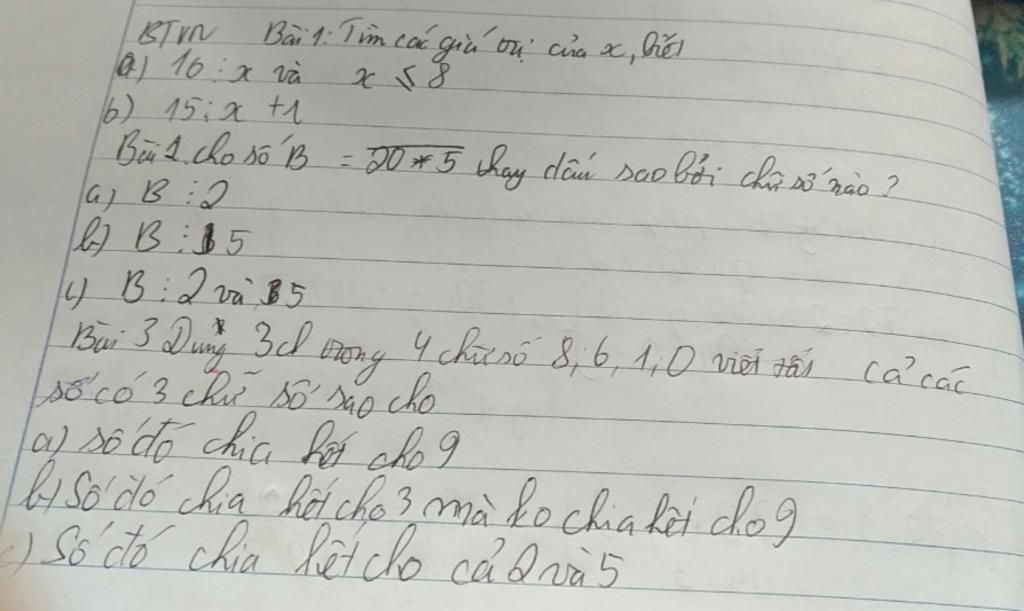 BTVN Bài 1: Tìm các giá trị của x, biết
a) 16 ⋮ x và x < 8
b) 15 ⋮ x + 1
Bài 2 cho số B = 20*5 thay dấu sao bởi chữ số nào?
a) B ⋮ 2
b) B ⋮ 5
c) B ⋮ 2 và 5
Bài 3 Dùng 3 trong 4 chữ số 8, 6, 1, 0 viết tất cả các
số có 3 chữ số sao cho
a) số đó chia hết cho 9
b) Số đó chia hết cho 3 mà ko chia hết cho 9
c) Số đó chia hết cho cả 2 và 5